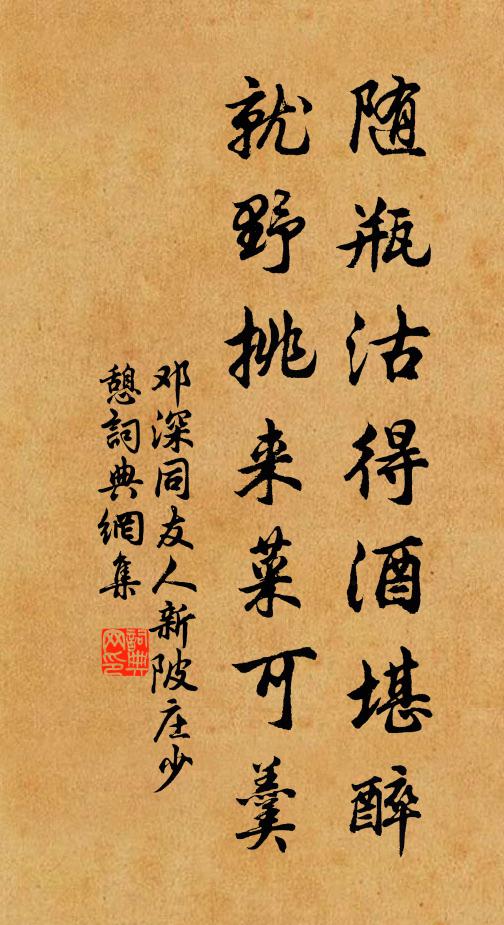 随瓶沽得酒堪醉
就野挑来菜可羹
邓深同友人新陂庄少
憩詞典網集
詞典网印